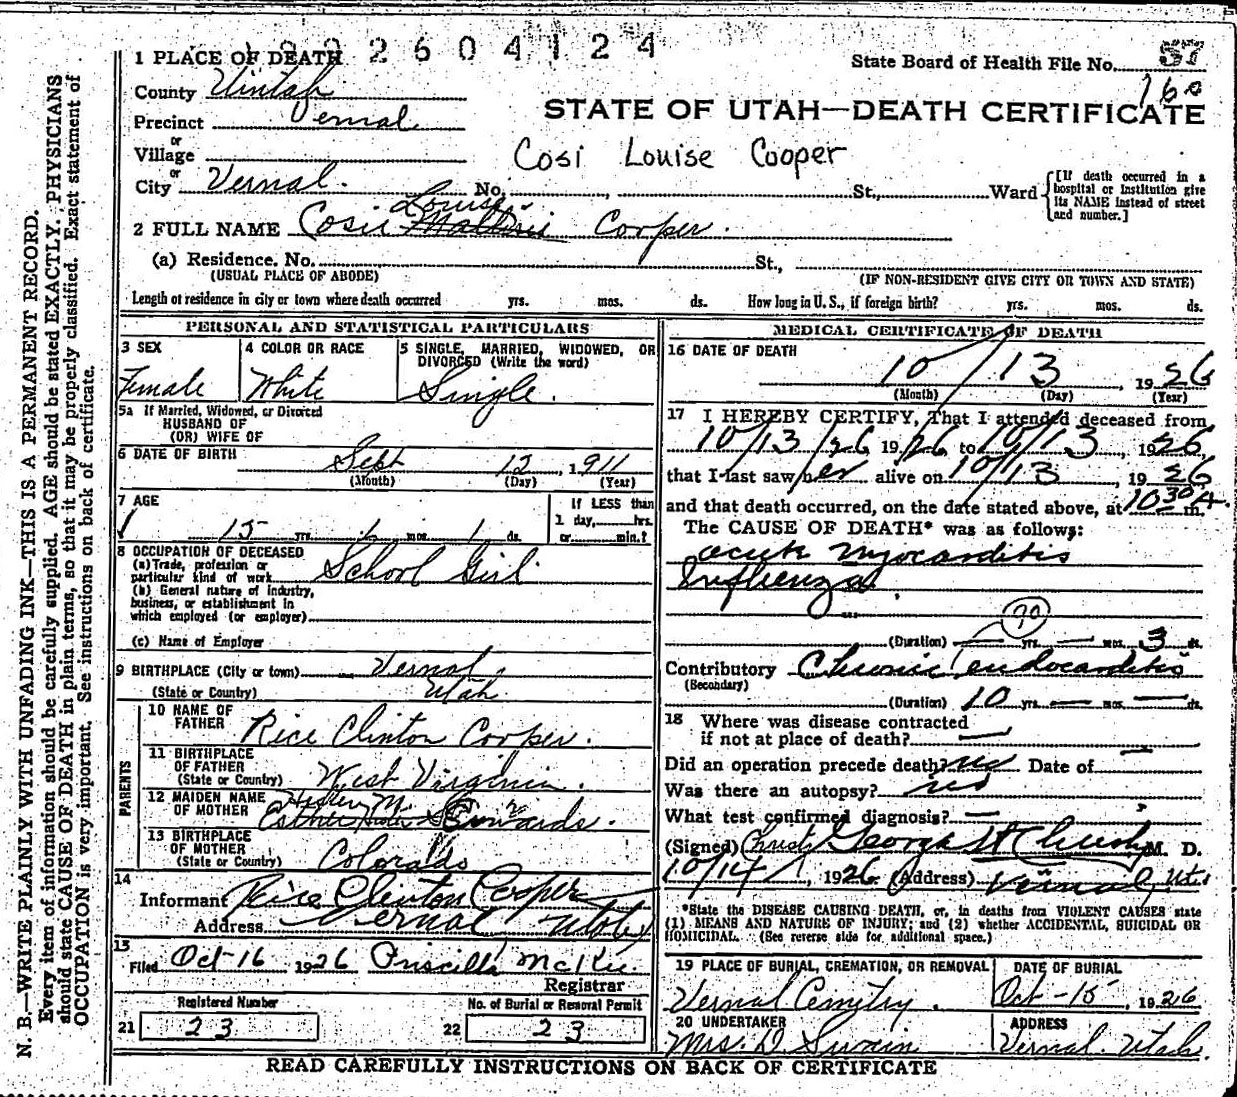 2604124
1 PLACE OF DEATH
State Board of Health File No. 57
160
County Uintah
STATE OF UTAH—DEATH CERTIFICATE
Precinct Vernal
or
Village
Cosi Louise Cooper
or
City Vernal. No. , St., Ward
[If death occurred in a hospital or institution give its NAME instead of street and number.]
Louise
2 FULL NAME Cosie Cooper.
(a) Residence. No. St.,
(USUAL PLACE OF ABODE) (IF NON-RESIDENT GIVE CITY OR TOWN AND STATE)
Length of residence in city or town where death occurred yrs. mos. ds. How long in U. S., if foreign birth? yrs. mos. ds.
PERSONAL AND STATISTICAL PARTICULARS
3 SEX
Female
4 COLOR OR RACE
White
5 SINGLE, MARRIED, WIDOWED, OR
DIVORCED (Write the word)
Single.
5a If Married, Widowed, or Divorced
HUSBAND OF
(OR) WIFE OF
6 DATE OF BIRTH Sept 12, 1911
(Month) (Day) (Year)
7 AGE
15 yrs. 1 mos. 1 ds.
If LESS than
1 day, hrs.
or min.?
8 OCCUPATION OF DECEASED
(a) Trade, profession or
particular kind of work School Girl.
(b) General nature of Industry,
business, or establishment in
which employed (or employer)
(c) Name of Employer
9 BIRTHPLACE (City or town) Vernal
(State or Country) Utah
PARENTS
10 NAME OF
FATHER Rice Clinton Cooper.
11 BIRTHPLACE
OF FATHER
(State or Country) West Virginia.
12 MAIDEN NAME
OF MOTHER Edwards.
13 BIRTHPLACE
OF MOTHER
(State or Country) Colorado
14
Informant Rice Clinton Cooper
Address Vernal Utah
15
Filed Oct-16 1926 Priscilla McKee.
Registrar
Registered Number No. of Burial or Removal Permit
21 23 22 23
MEDICAL CERTIFICATE OF DEATH
16 DATE OF DEATH
10/13, 1926
(Month) (Day) (Year)
17 I HEREBY CERTIFY, That I attended deceased from
10/13/26 1926 to 10/13, 1926,
that I last saw her alive on 10/13, 1926
and that death occurred, on the date stated above, at 10 30 A. m.
The CAUSE OF DEATH* was as follows:
acute myocarditis
Influenza.
90
(Duration) — yrs. — mos. 3 ds.
Contributory Chronic endocarditis
(Secondary)
(Duration) 10 yrs. — mos. — ds.
18 Where was disease contracted
if not at place of death? —
Did an operation precede death? no Date of
Was there an autopsy? no
What test confirmed diagnosis? —
(Signed) George M. D.
10/14, 1926 (Address) Vernal, Ut.
*State the DISEASE CAUSING DEATH, or, in deaths from VIOLENT CAUSES state
(1) MEANS AND NATURE OF INJURY; and (2) whether ACCIDENTAL, SUICIDAL OR
HOMICIDAL. (See reverse side for additional space.)
19 PLACE OF BURIAL, CREMATION, OR REMOVAL
Vernal Cemetry.
DATE OF BURIAL
Oct-15, 1926
20 UNDERTAKER
Mrs. D. Swain
ADDRESS
Vernal. Utah.
READ CAREFULLY INSTRUCTIONS ON BACK OF CERTIFICATE
N. B.—WRITE PLAINLY WITH UNFADING INK—THIS IS A PERMANENT RECORD.
Every item of information should be carefully supplied. AGE should be stated EXACTLY. PHYSICIANS
should state CAUSE OF DEATH in plain terms, so that it may be properly classified. Exact statement of
OCCUPATION is very important. See instructions on back of certificate.